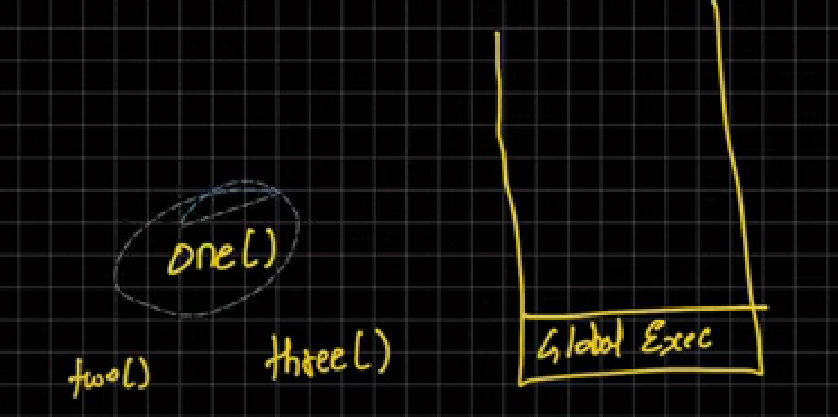 one()
two()
three()
Global Exec